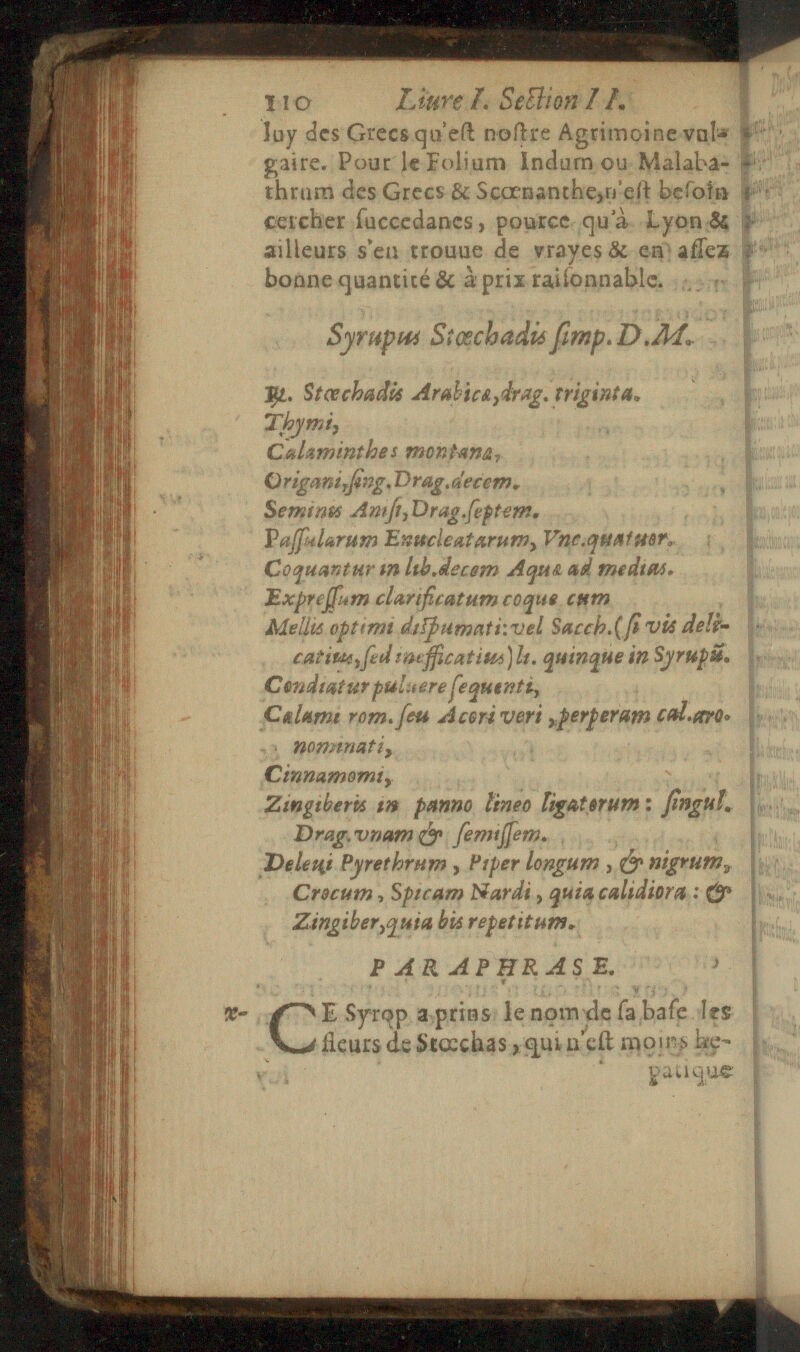 110 Liure I. Section II.
luy des Grecs qu'est nostre Agrimoine vul-
gaire. Pour le Folium Indum ou Malaba-
thrum des Grecs & Scœnanthe, n'est besoin
cercher succedanes, pource qu'à Lyon &
ailleurs s'en trouue de vrayes & en assez
bonne quantité & à prix raisonnable.
Syrupus Stœchadis simp. D. M.
℞. Stœchadis Arabicæ, drag. triginta.
Thymi,
Calaminthes montanæ,
Origani, sing. Drag. decem.
Seminis Anisi, Drag. septem.
Passularum Enucleatarum, Vnc. quatuor.
Coquantur in lib. decem Aquæ ad medias.
Expressum clarificatum coque cum
Mellis optimi dispumati: vel Sacch. (si vis deli-
catius, sed inefficatius) li. quinque in Syrupū.
Condiatur puluere sequenti,
Calami rom. seu Acori veri, perperam cal. aro.
nominati,
Cinnamomi,
Zingiberis in panno lineo ligatorum: singul.
Drag. vnam & semissem.
Deleui Pyrethrum, Piper longum, & nigrum,
Crocum, Spicam Nardi, quia calidiora: &
Zingiber, quia bis repetitum.
PARAPHRASE.
CE Syrop a prins le nom de sa base les
fleurs de Stœchas, qui n'est moins he-
patique